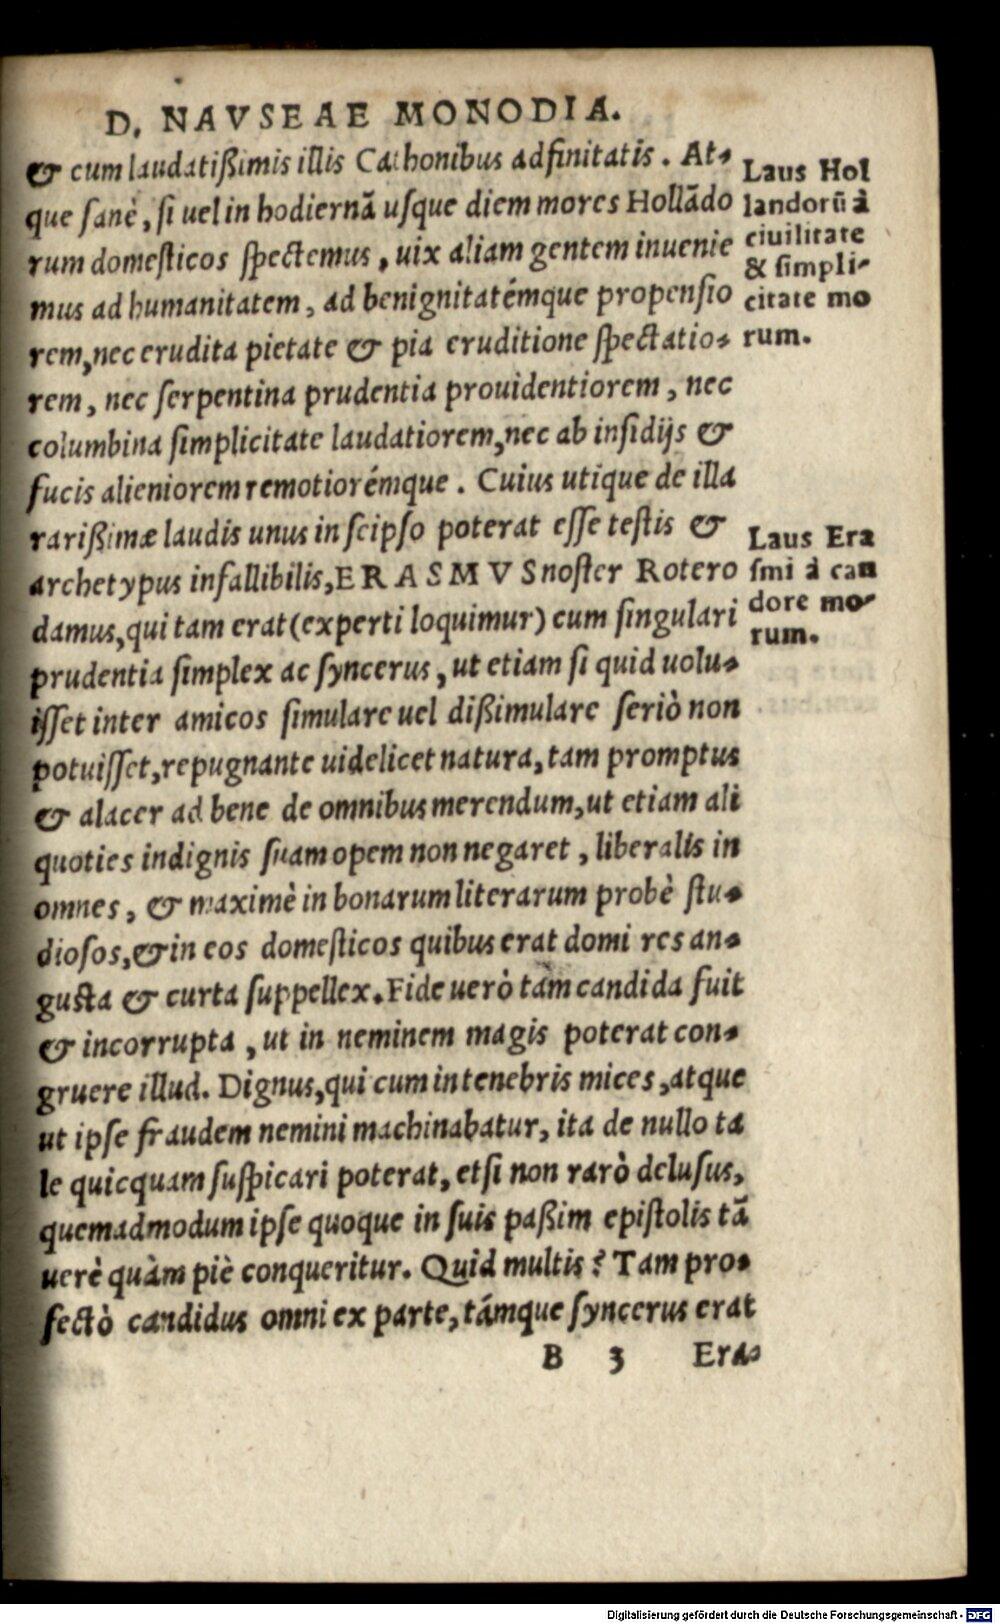 D. NAVSEAE MONODIA.
& cum laudatißimis illis Cathonibus adfinitatis. At-
que sanè, si uel in hodiernā usque diem mores Hollādo
rum domesticos spectemus, uix aliam gentem inuenie
mus ad humanitatem, ad benignitatémque propensio
rem, nec erudita pietate & pia eruditione spectatio-
rem, nec serpentina prudentia prouidentiorem, nec
columbina simplicitate laudatiorem, nec ab insidijs &
fucis alieniorem remotiorémque. Cuius utique de illa
rarißimæ laudis unus in seipso poterat esse testis &
archetypus infallibilis, ERASMVS noster Rotero
damus, qui tam erat (experti loquimur) cum singulari
prudentia simplex ac syncerus, ut etiam si quid uolu-
isset inter amicos simulare uel dißimulare seriò non
potuisset, repugnante uidelicet natura, tam promptus
& alacer ad bene de omnibus merendum, ut etiam ali
quoties indignis suam opem non negaret, liberalis in
omnes, & maximè in bonarum literarum probè stu-
diosos, & in eos domesticos quibus erat domi res an-
gusta & curta suppellex. Fide uerò tam candida fuit
& incorrupta, ut in neminem magis poterat con-
gruere illud. Dignus, qui cum in tenebris mices, atque
ut ipse fraudem nemini machinabatur, ita de nullo ta
le quicquam suspicari poterat, etsi non rarò delusus,
quemadmodum ipse quoque in suis paßim epistolis tā
uerè quàm piè conqueritur. Quid multis? Tam pro-
fectò candidus omni ex parte, támque syncerus erat
B 3 Era-
Laus Hol
landorū à
ciuilitate
& simpli-
citate mo
rum.
Laus Era
smi à can
dore mo-
rum.
Digitalisierung gefördert durch die Deutsche Forschungsgemeinschaft - DFG